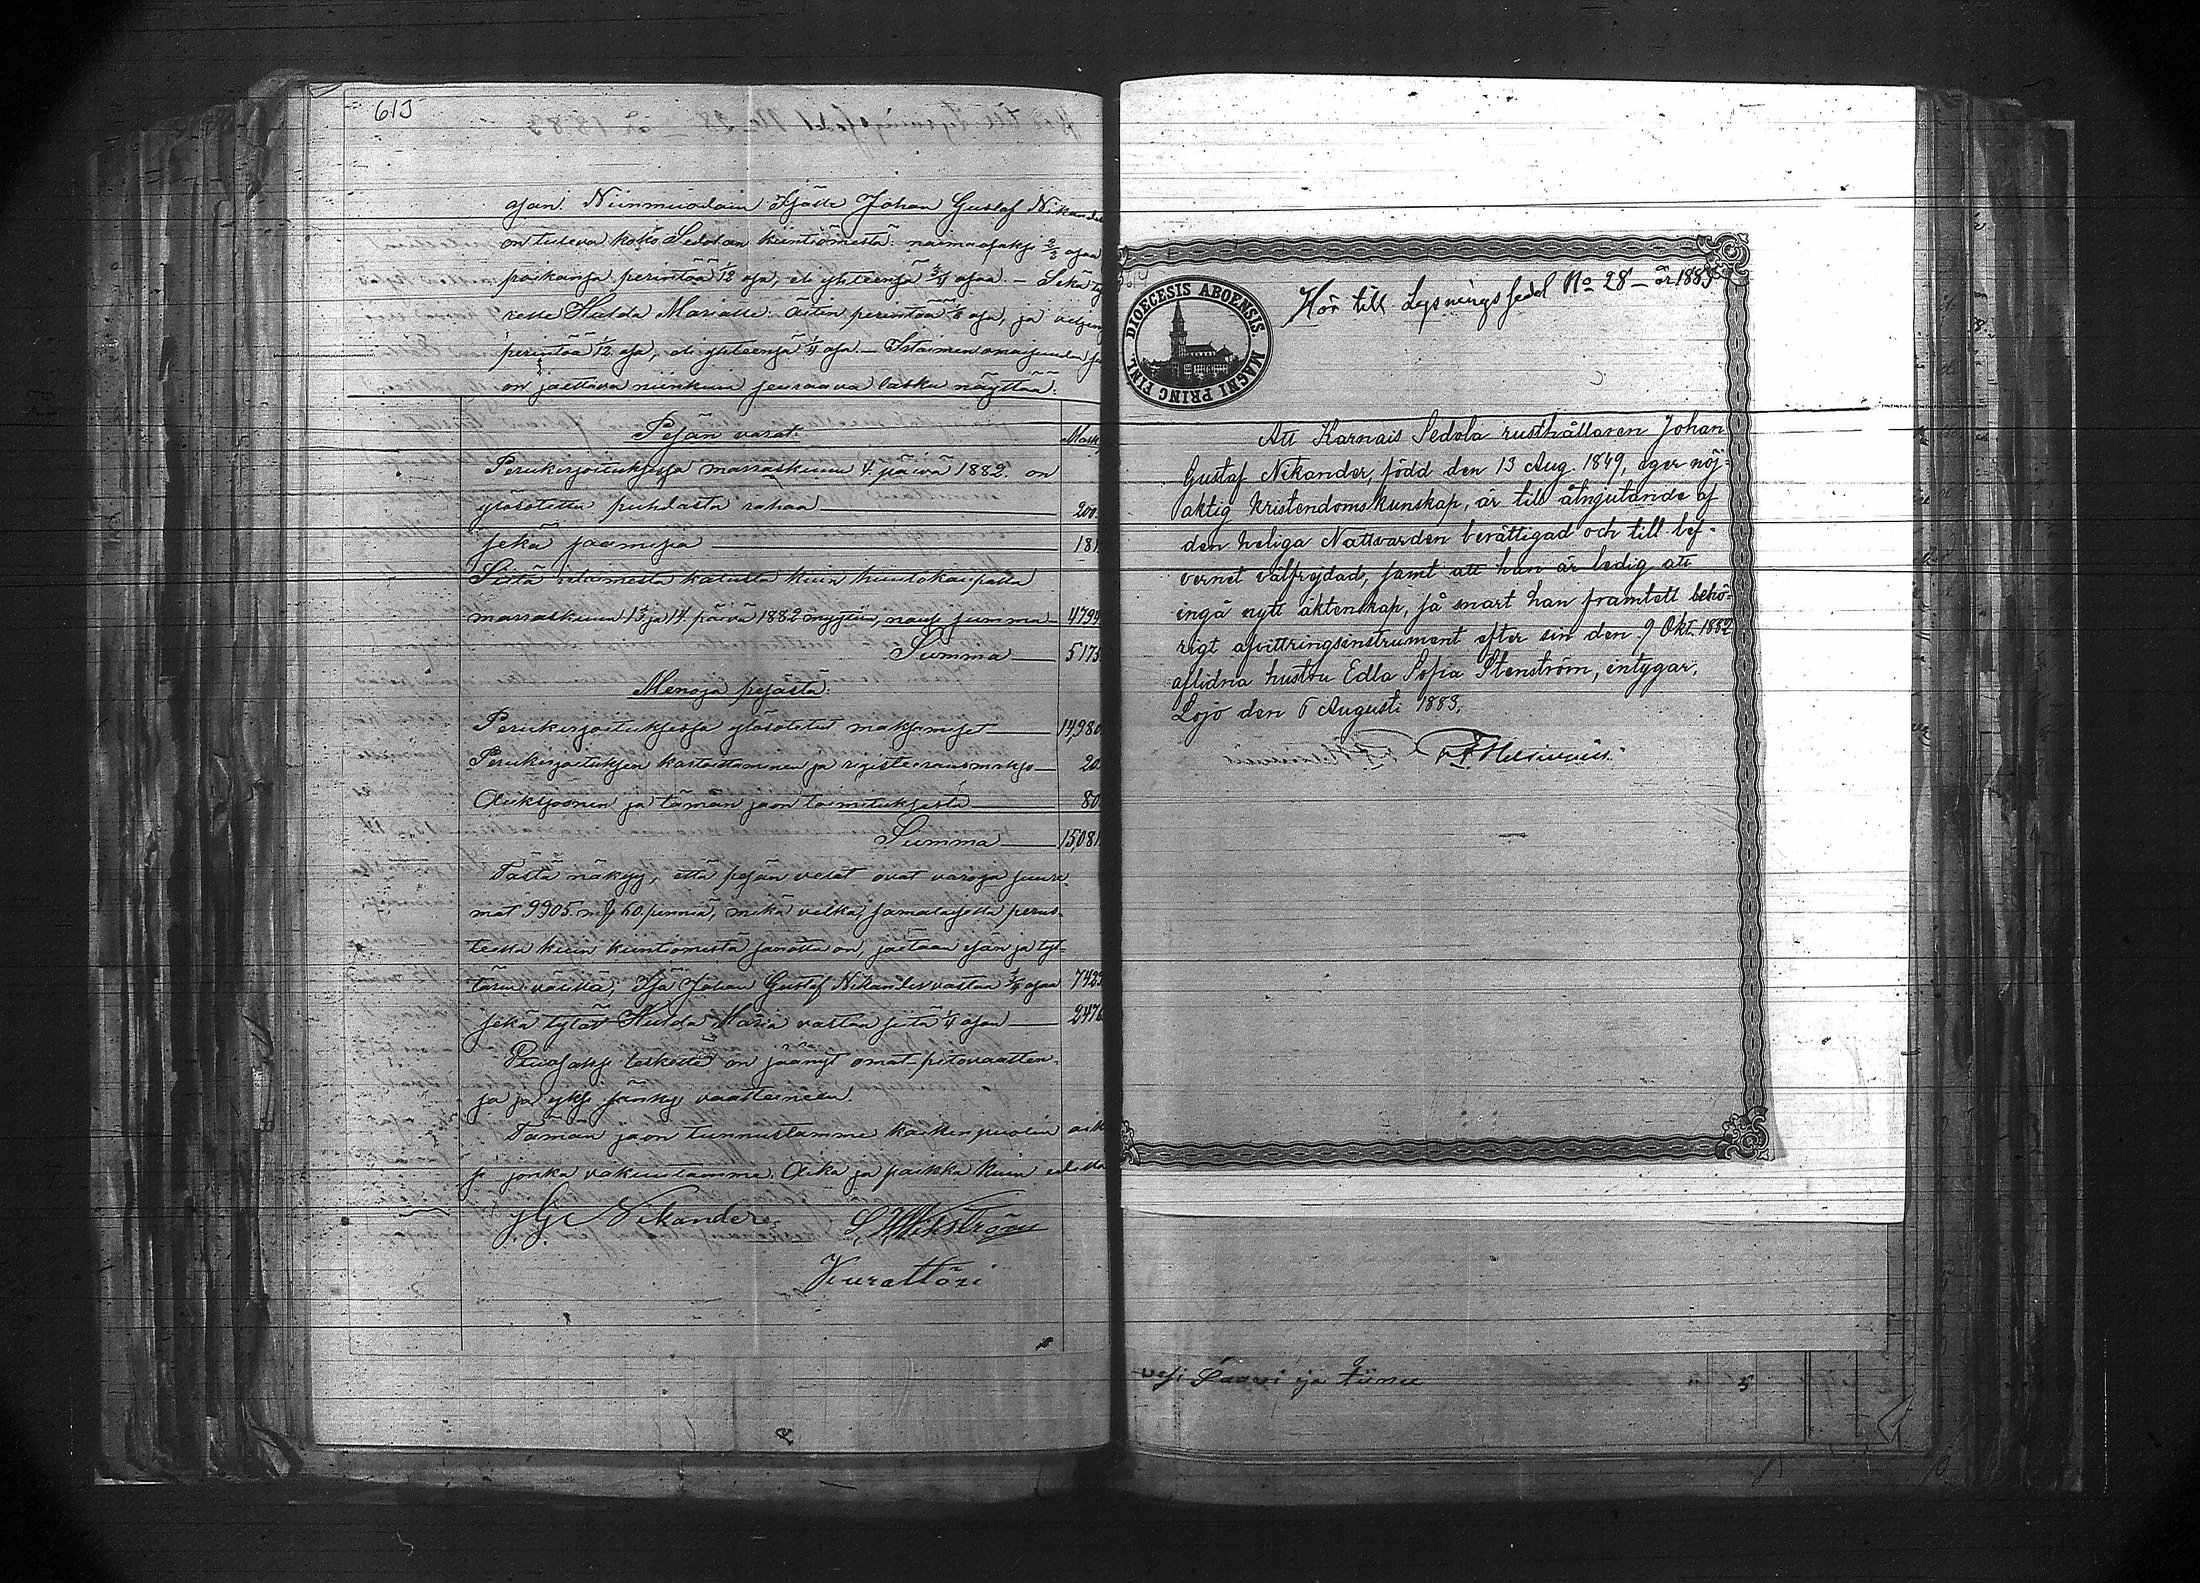 613
ajan. Niinmuodoin Isälle Johan Gustaf Nikander
on tuleva koko Sedolan kiintiömestä: naimaosaksi 2/3 osaa
poikansa perintöä 1/12 osa, eli yhteensä 3/4 osaa. — Sekä ty
relle Hulda Marialle äitin perintöä 1/6 osa, ja veljen
perintöä 1/12 osa, eli yhteensä 1/4 osa. — Irtaimen omaisuuden
on jaettava niinkuin seuraava lasku näyttää:
Pesän varat:
Perukirjoituksessa marraskuun 4 päivä 1882 on
ylösotettu puhdasta rahaa 200
sekä saamisia 181
Siitä irtaimesta kalusta kuin huutokaupalla
marraskuun 13 ja 14 päivä 1882 myytiin, nousi summa 4794
Summa 5175
Menoja pesästä:
Perukirjoituksessa ylösotetut maksamiset 14,980
Perukirjoituksen kartoittaminen ja registeerausmakso 20
Auksjoonin ja tämän jaon toimituksesta 80
Summa 15,081
Tästä näkyy, että pesän velat ovat varoja suure-
mat 9905 mk 60 penniä, mikä velka samalaisella perus-
teella kuin kiintiömestä sanottu on, jaetaan isän ja tyt-
tären välillä, Isä Johan Gustaf Nikander vastaa 3/4 osaa 7429
sekä tytär Hulda Maria vastaa siitä 1/4 osan 2476
leskelle on jäänyt omat pitovaatteen-
sa ja yksi sänky vaatteineen.
Tämän jaon tunnustamme kaikin puolin
ja jonka vakuutamme. Aika ja paikka kuin edellä
J. G. Nikander. S. Wikström
Kurattöri
DIOECESIS ABOENSIS. MAGNI PRINC FINL.
Hör till Lysningssedel No 28 — år 1883
Att Karnais Sedola rusthållaren Johan
Gustaf Nikander, född den 13 Aug. 1849, eger nöj-
aktig kristendomskunskap, är till åtnjutande af
den heliga Nattvarden berättigad och till lef-
vernet välfrejdad, samt att han är ledig att
ingå nytt äktenskap, så snart han framtett behö-
rigt afvittringsinstrument efter sin den 9 Okt. 1882
aflidna hustru Edla Sofia Stenström, intygar.
Lojo den 6 Augusti 1883.
vesi Saavi ja tiinu 5